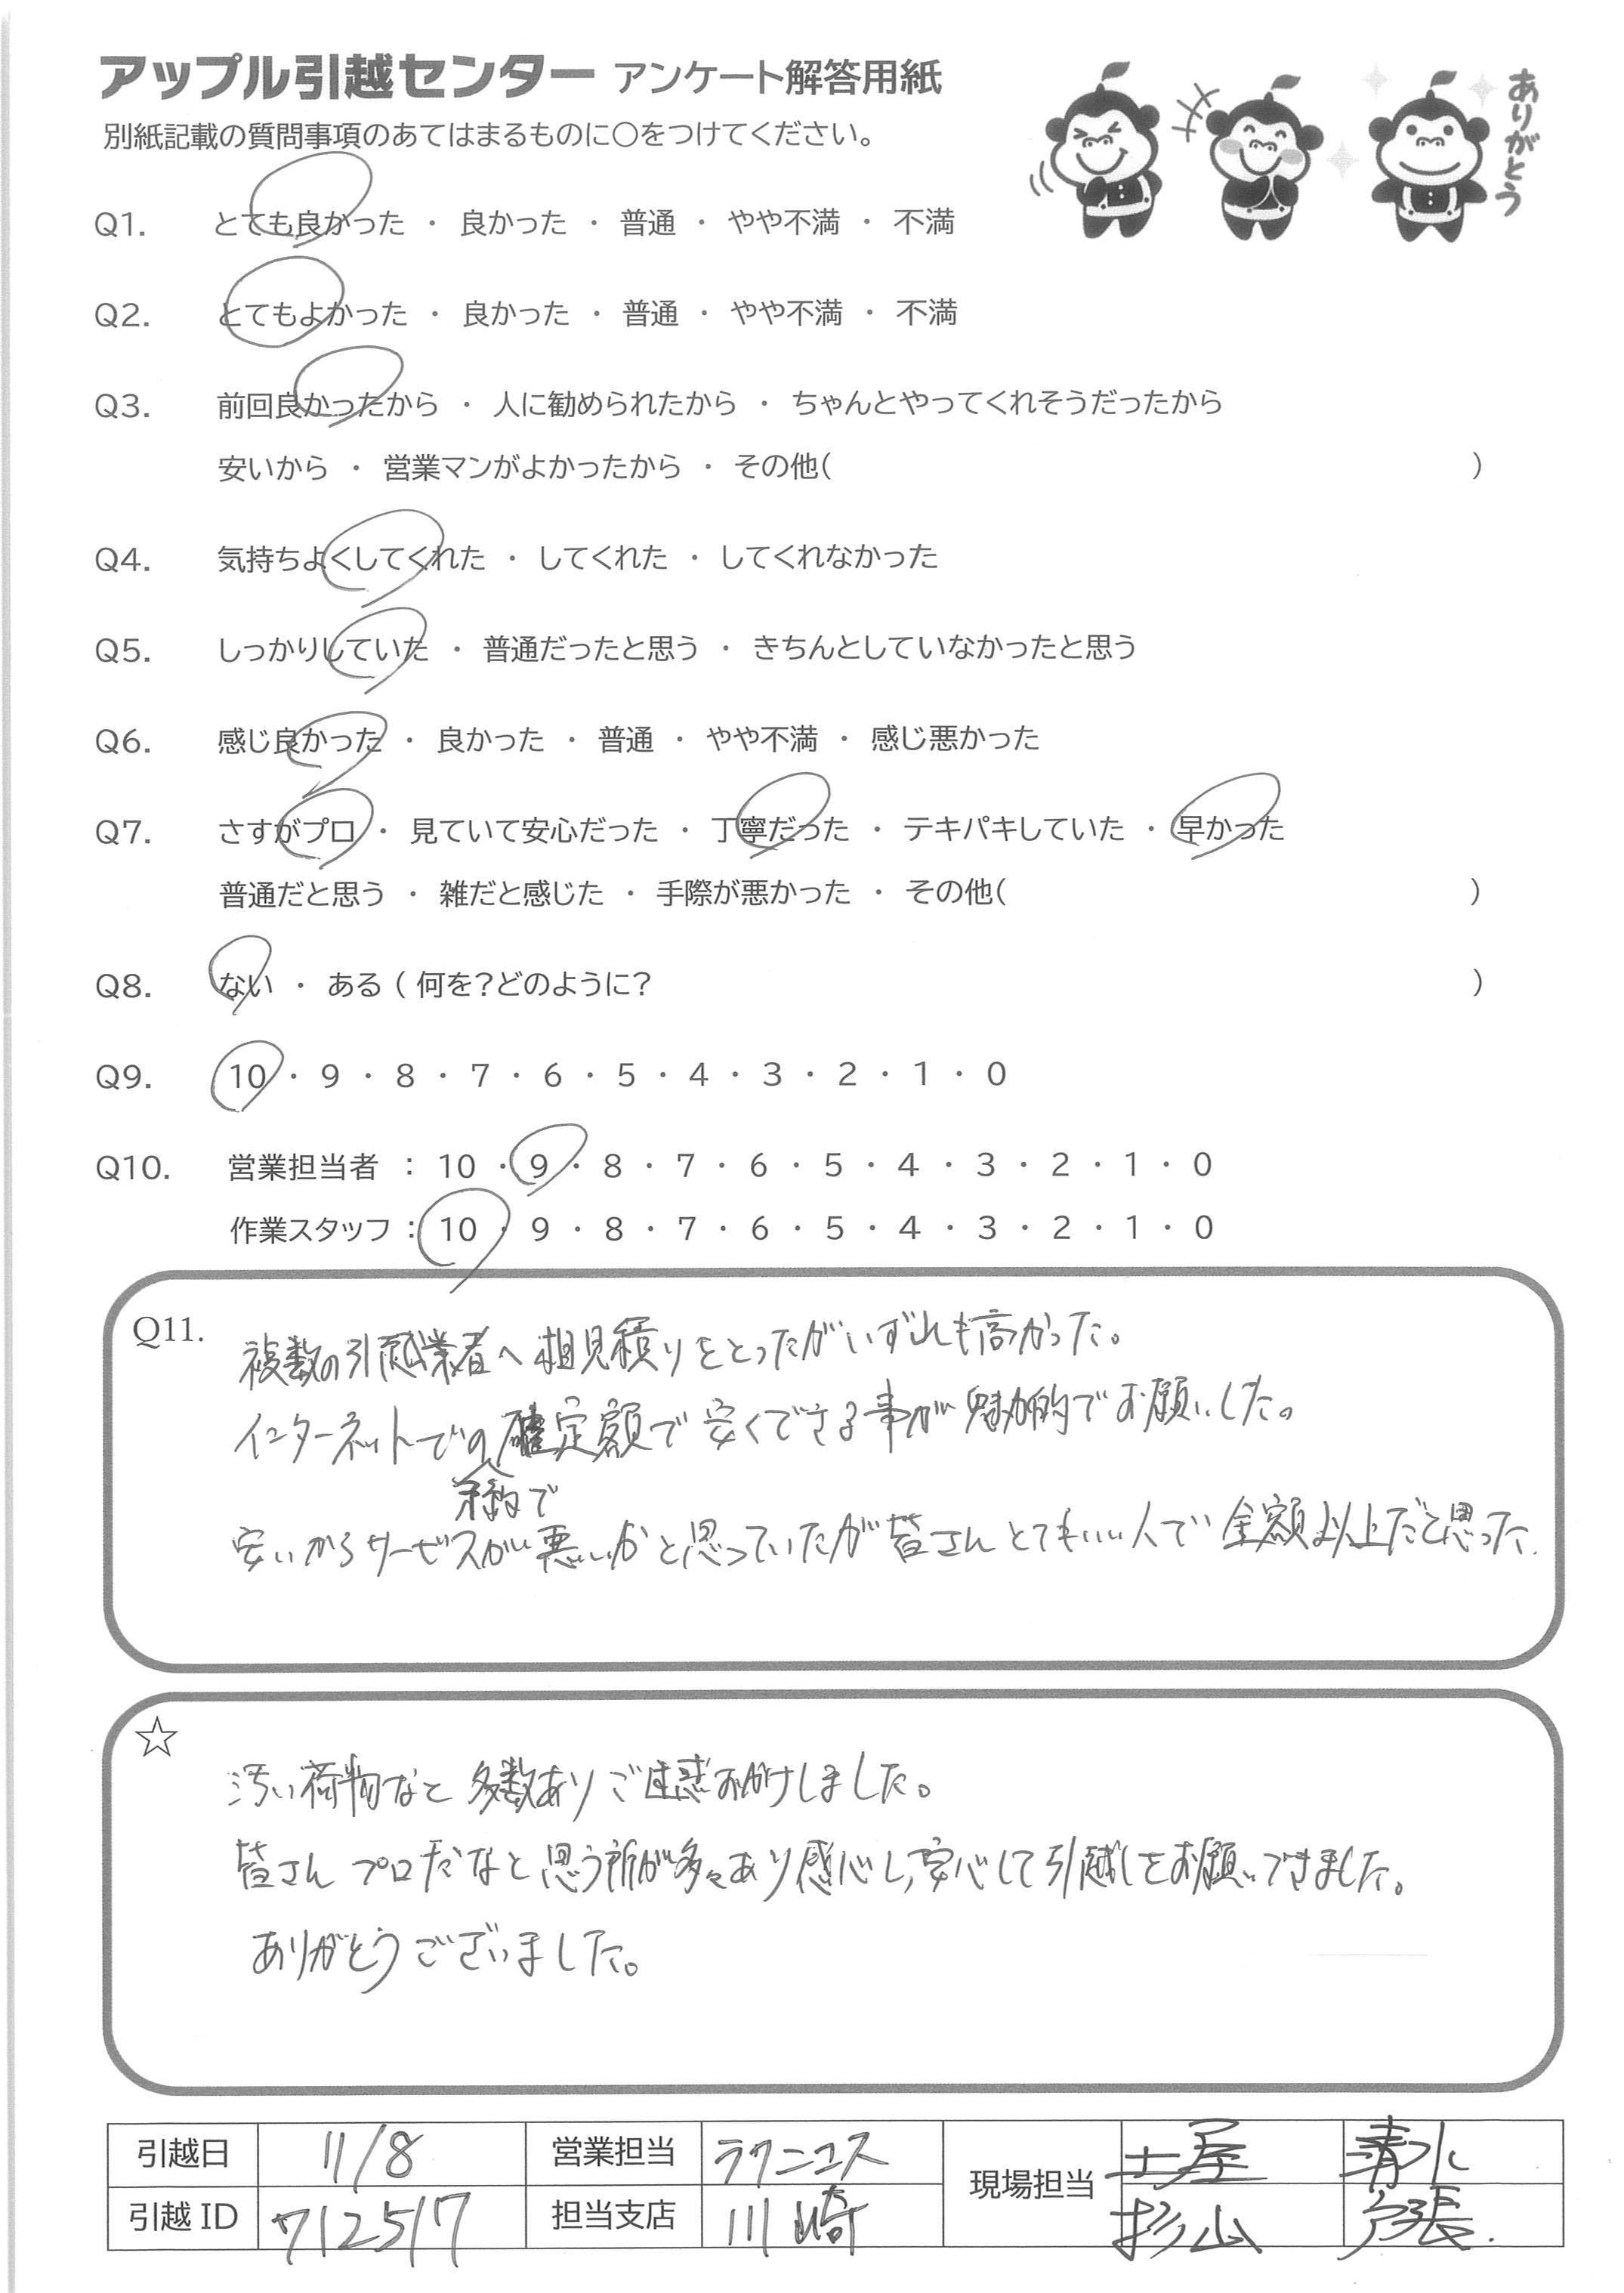 アップル引越センター アンケート解答用紙
別紙記載の質問事項のあてはまるものに○をつけてください。
ありがとう
Q1. とても良かった ・ 良かった ・ 普通 ・ やや不満 ・ 不満
Q2. とてもよかった ・ 良かった ・ 普通 ・ やや不満 ・ 不満
Q3. 前回良かったから ・ 人に勧められたから ・ ちゃんとやってくれそうだったから
安いから ・ 営業マンがよかったから ・ その他( )
Q4. 気持ちよくしてくれた ・ してくれた ・ してくれなかった
Q5. しっかりしていた ・ 普通だったと思う ・ きちんとしていなかったと思う
Q6. 感じ良かった ・ 良かった ・ 普通 ・ やや不満 ・ 感じ悪かった
Q7. さすがプロ ・ 見ていて安心だった ・ 丁寧だった ・ テキパキしていた ・ 早かった
普通だと思う ・ 雑だと感じた ・ 手際が悪かった ・ その他( )
Q8. ない ・ ある ( 何を?どのように? )
Q9. 10 ・ 9 ・ 8 ・ 7 ・ 6 ・ 5 ・ 4 ・ 3 ・ 2 ・ 1 ・ 0
Q10. 営業担当者 : 10 ・ 9 ・ 8 ・ 7 ・ 6 ・ 5 ・ 4 ・ 3 ・ 2 ・ 1 ・ 0
作業スタッフ : 10 ・ 9 ・ 8 ・ 7 ・ 6 ・ 5 ・ 4 ・ 3 ・ 2 ・ 1 ・ 0
Q11. 複数の引越業者へ相見積りをとったがいずれも高かった。
インターネットでの確定額で安くできる事が魅力的でお願いした。
予約で
安いからサービスが悪いかと思っていたが皆さんとてもいい人で金額以上だと思った.
☆
汚い荷物など多数ありご迷惑おかけしました。
皆さんプロだなと思う所が多々あり感心し,安心して引越しをお願いできました。
ありがとうございました。
引越日 11/8 営業担当 ラクニコス 現場担当 土屋 清水
引越ID 712517 担当支店 川崎 杉山 夕張.